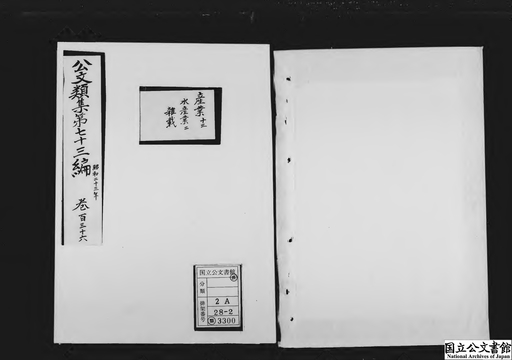 公文類集第七十三編 昭和二十三年 巻百三十六
産業十三
水産業二
雑載
国立公文書館
分類
排架番号
2 A
28-2
3300
国立公文書館
National Archives of Japan